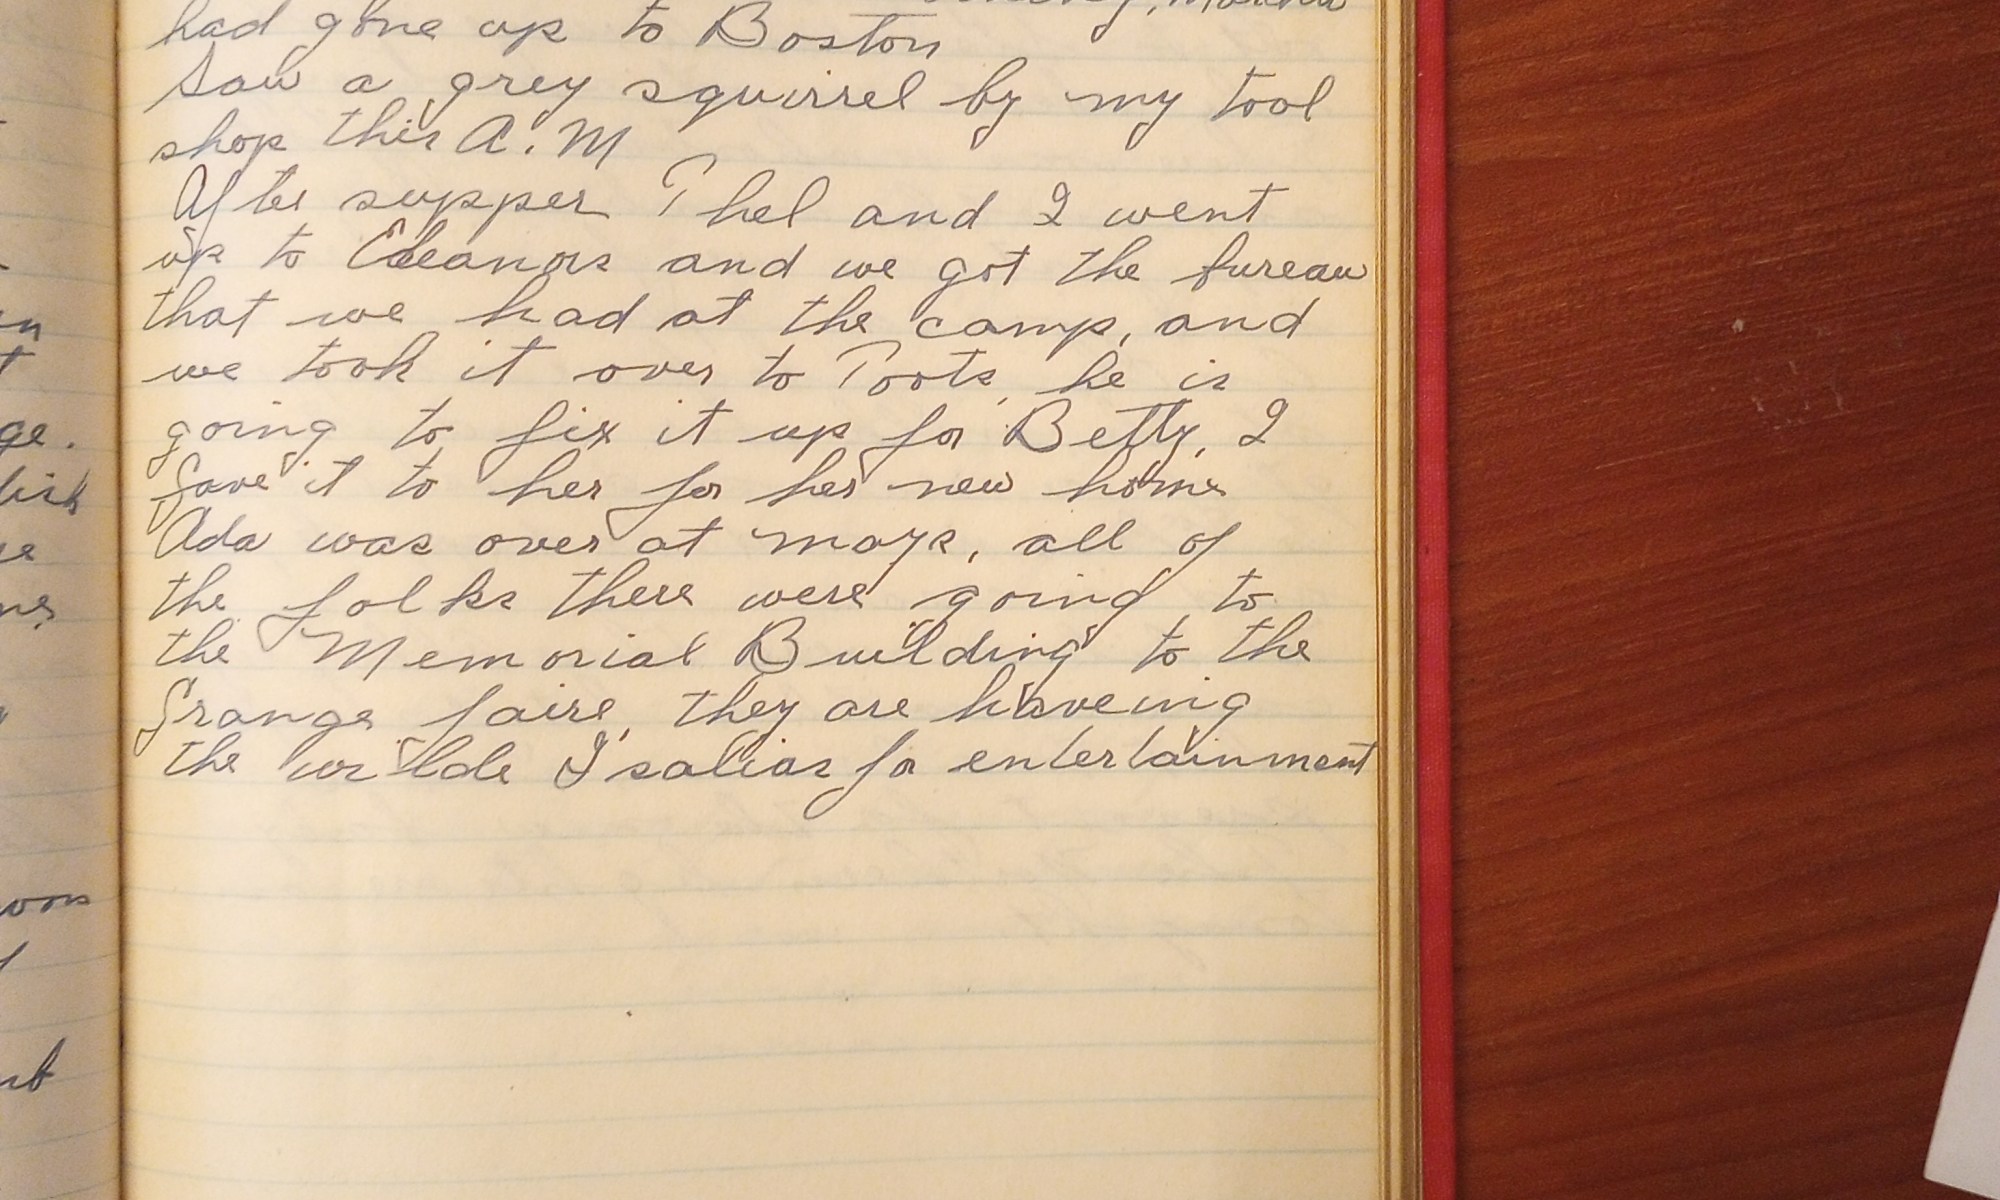 had gone up to Boston
Saw a grey squirrel by my tool
shop this A.M
After supper Thel and I went
up to Eleanors and we got the bureau
that we had at the camp, and
we took it over to Toots, he is
going to fix it up for Betty, I
gave it to her for her new home
Ada was over at mays, all of
the folks there were going to
the Memorial Building to the
Grange faire, they are haveing
the for entertainment